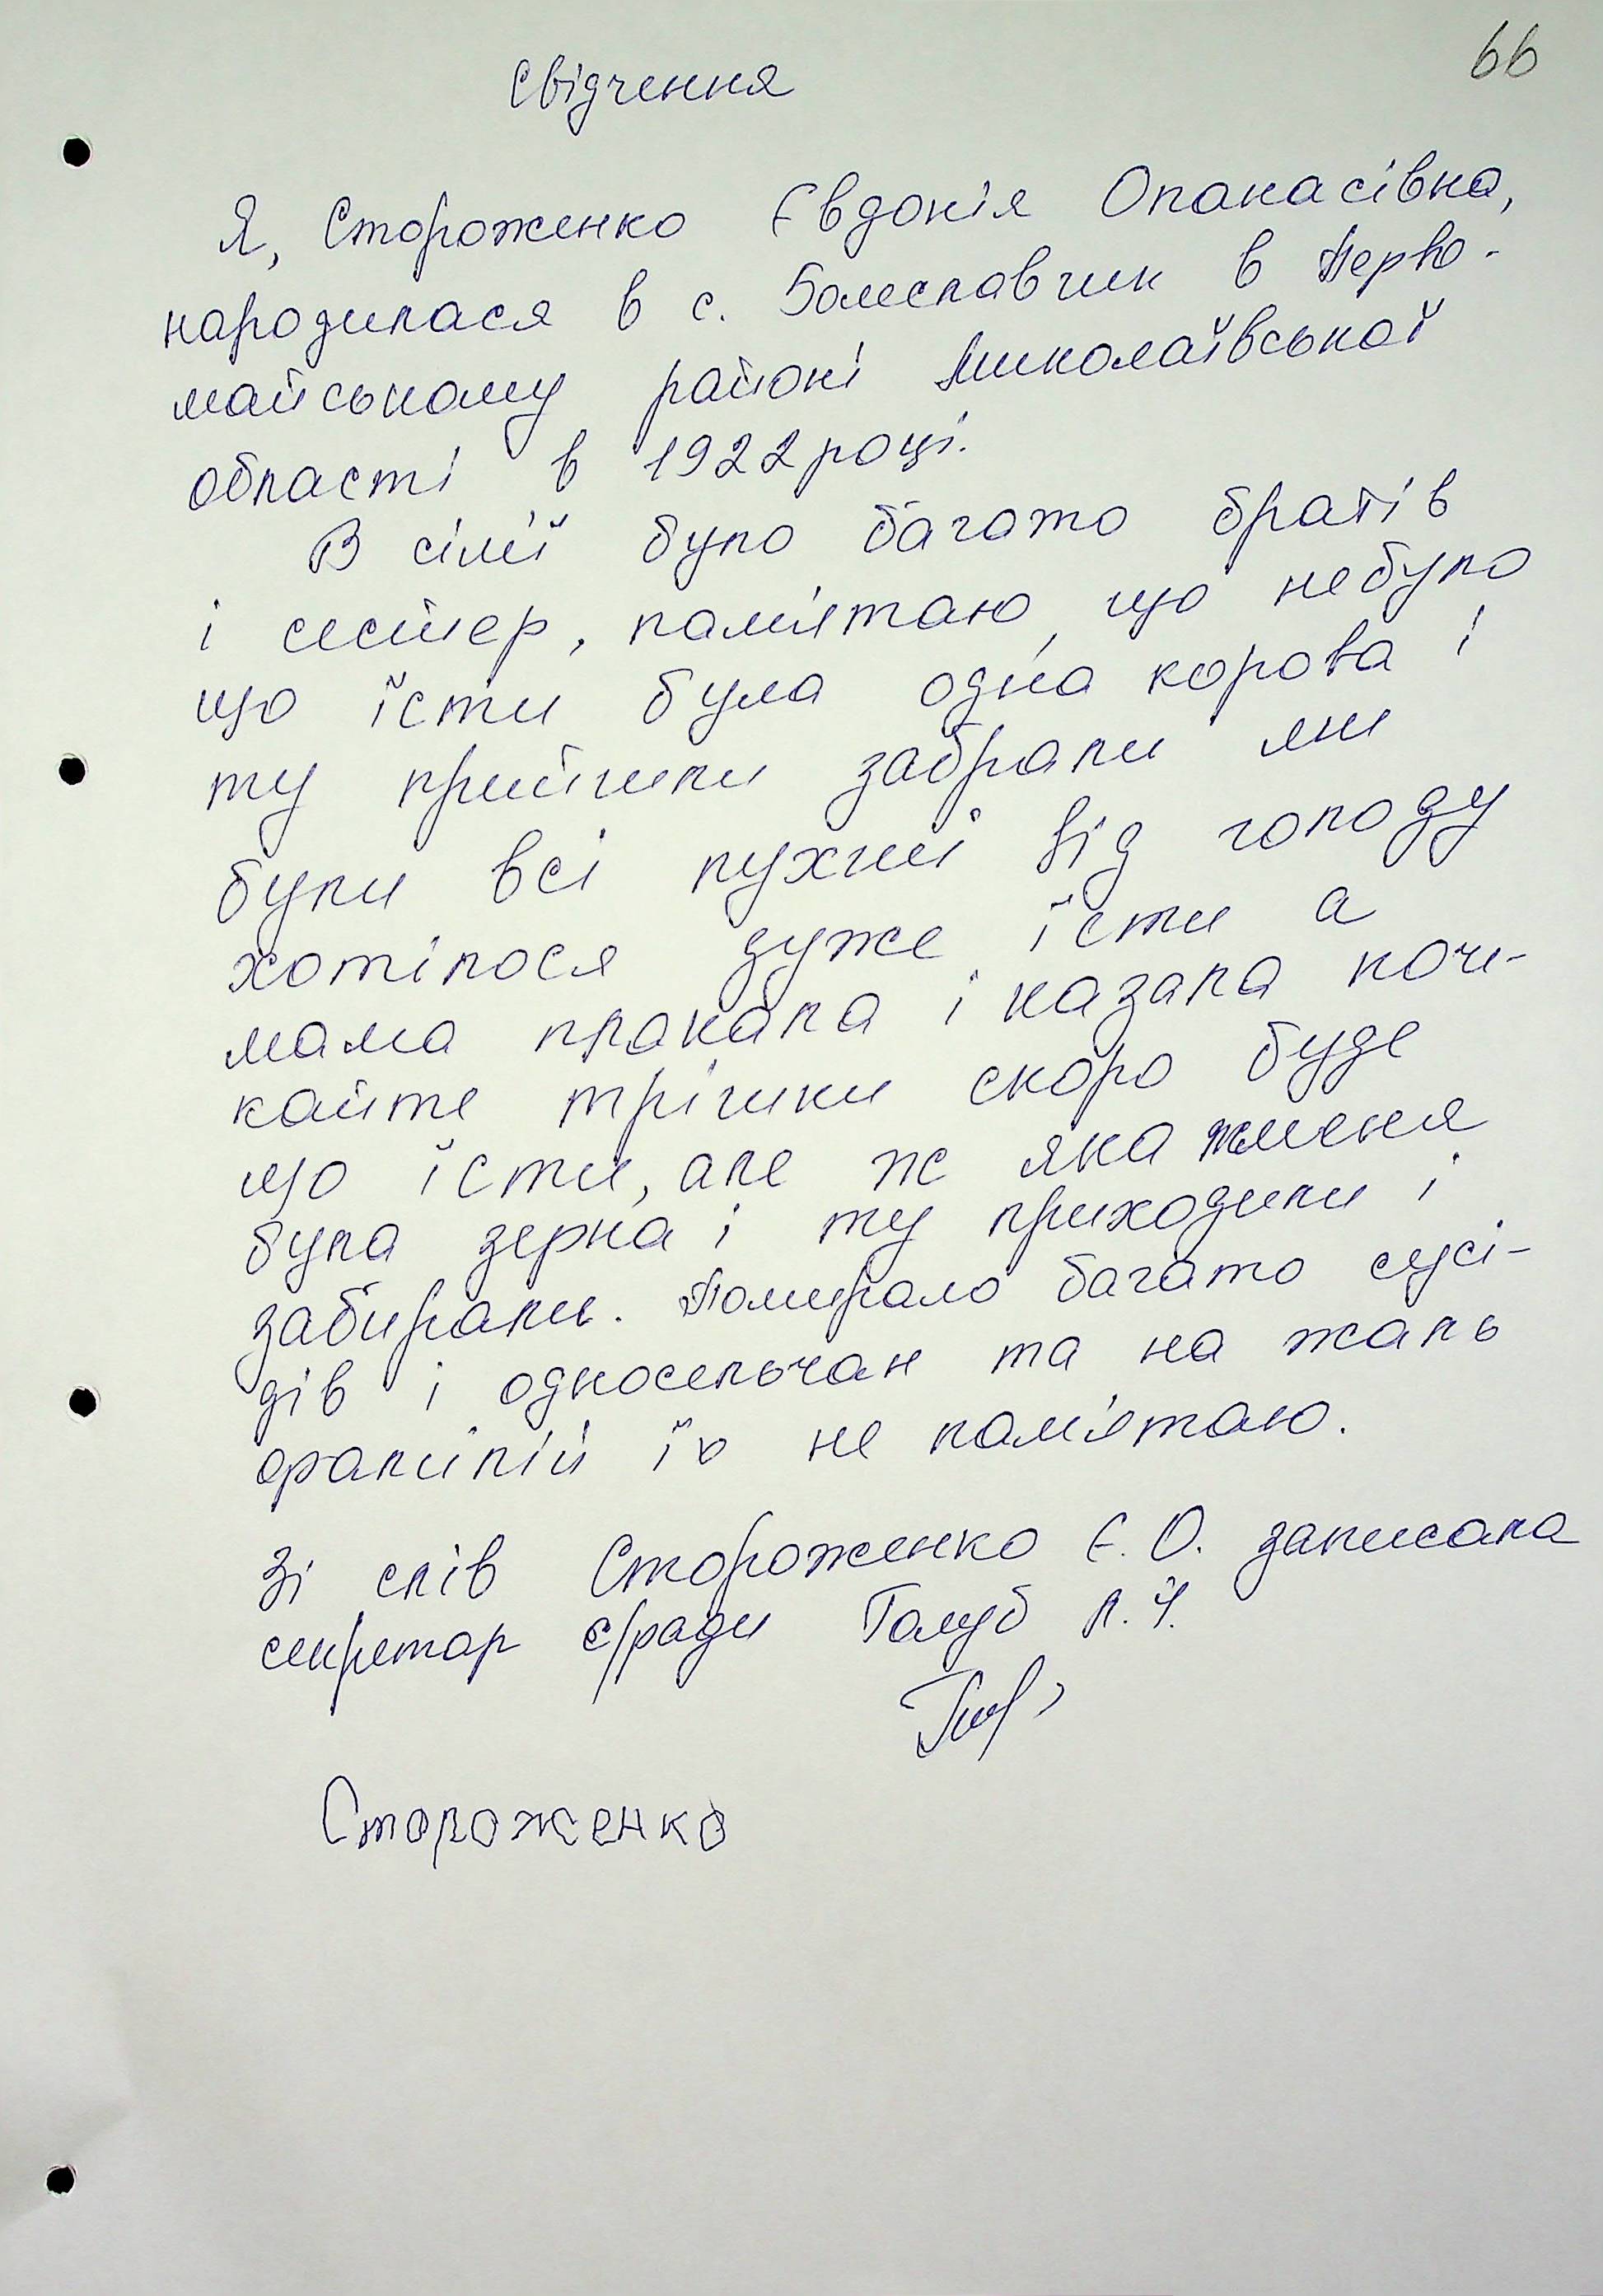 66
Свідчення
Я, Стороженко Євдокія Опанасівна,
народилася в с. Болеславчик в Перво-
майському районі Миколаївської
області в 1922 році.
В сім'ї було багато братів
і сестер, пам'ятаю, що небуло
що їсти була одна корова і
ту прийшли забрали ми
були всі пухлі від голоду
хотілося дуже їсти а
мама плакала і казала поче-
кайте трішки скоро буде
що їсти, але ж яка жменя
була зерна і ту приходили і
забирали. Помирало багато сусі-
дів і односельчан та на жаль
фамилій їх не пам'ятаю.
Зі слів Стороженко Є. О. записала
секретар с/ради Голуб Л. Й.
Стороженко